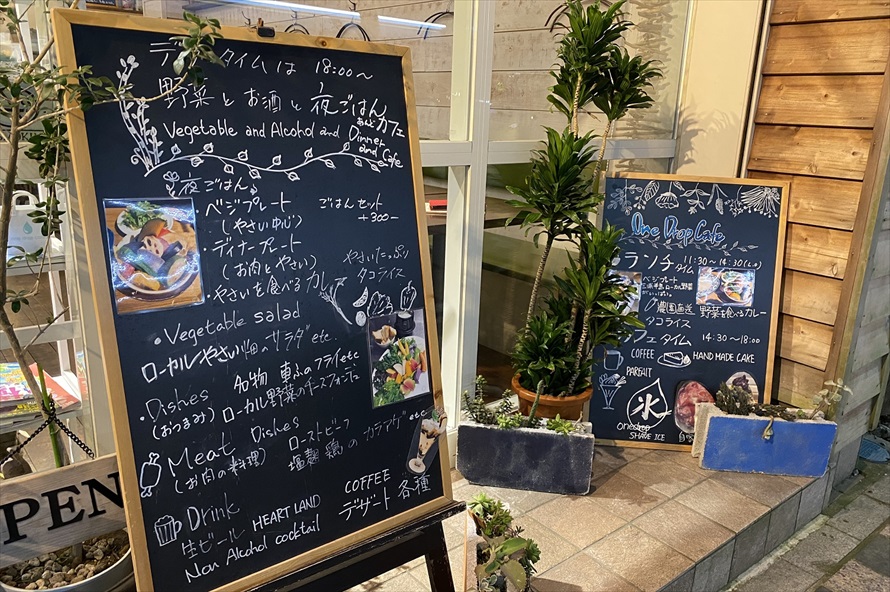 タイムは 18:00〜
野菜とお酒と夜ごはん
あんどカフェ
Vegetable and Alcohol and Dinner
and Cafe
夜ごはん
・ベジプレート
(やさい中心)
ごはんセット
+300-
・ディナープレート
(お肉とやさい)
・やさいを食べるカレー
やさいたっぷり
タコライス
・Vegetable salad
ローカルやさい畑のサラダ etc.
・Dishes
(おつまみ)
名物 車ふのフライ etc
ローカル野菜のチーズフォンデュ
Meat Dishes
(お肉の料理)
ローストビーフ
塩麹鶏のカラアゲ etc
Drink
生ビール HEART LAND
Non Alcohol cocktail
COFFEE
デザート 各種
PEN
One Drop Cafe
ランチタイム 11:30〜14:30
ベジプレート
農園直送 野菜を食べるカレー
タコライス
カフェタイム 14:30-18:00
COFFEE
HAND MADE CAKE
PARFAIT
氷
onedrop
SHAVE ICE